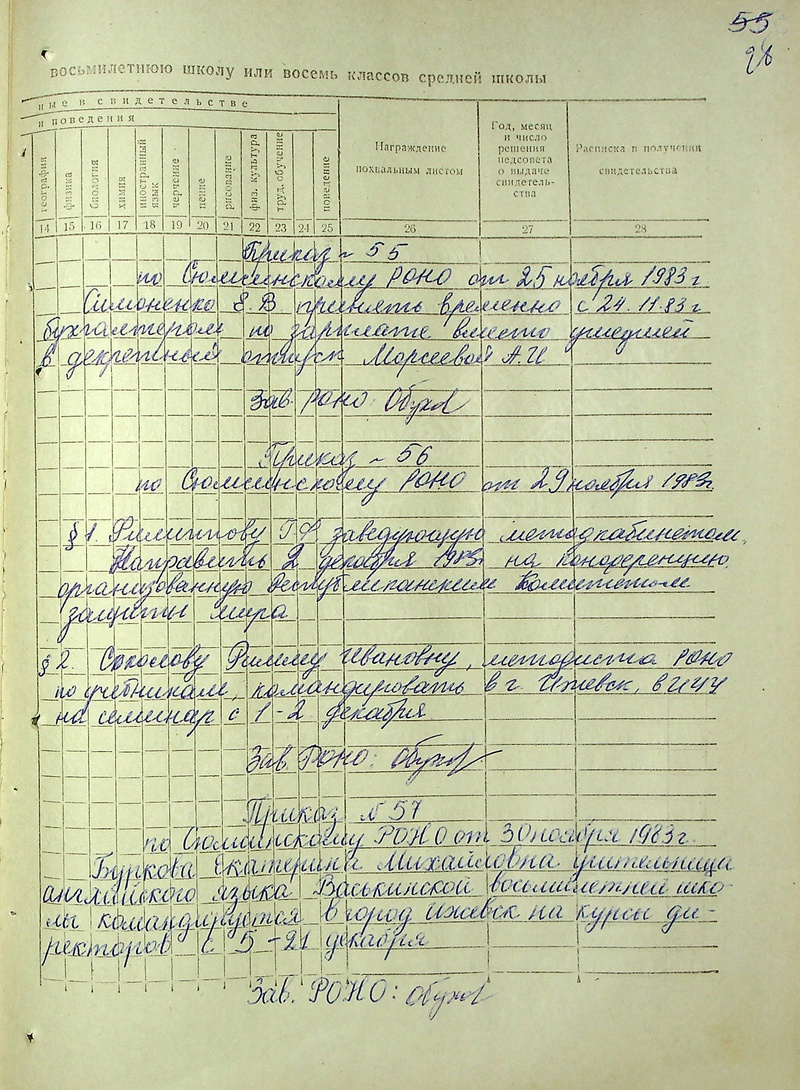 55
96
восьмилетнюю школу или восемь классов средней школы
ные в свидетельстве
и поведения
география
физика
биология
химия
иностранный язык
черчение
пение
рисование
физ. культура
труд. обучение
поведение
Награждение
похвальным листом
Год, месяц
и число
решения
педсовета
о выдаче
свидетель-
ства
Расписка в получении
свидетельства
14 15 16 17 18 19 20 21 22 23 24 25 26 27 28
Приказ ~ 55
по Сюмсинскому РОНО от 25 ноября 1983 г
Симоненко Е.В принять временно с 24.11.83 г
бухгалтером по зарплате вместо ушедшей
в декретный отпуск Морсеевой А.И
Зав. РОНО: Обухов
Приказ ~ 56
по Сюмсинскому РОНО от 29 ноября 1983г.
§ 1. Филиппову Г.Ф заведующую методкабинетом,
Направить 2 декабря 1983г на конференцию,
организованную Республиканским Комитетом
защиты мира
§ 2. Соколову Римму Ивановну, методиста РОНО
по учебникам, командировать в г. Ижевск, в ИУУ
на семинар с 1-2 декабря
Зав. РОНО: Обухов
Приказ N 57
по Сюмсинскому РОНО от 30 ноября 1983 г.
Буркова Екатерина Михайловна учительница
английского языка Васькинской восьмилетней шко-
лы командируется в город Ижевск на курсы ди-
ректоров с 5-21 декабря
Зав. РОНО: Обухов